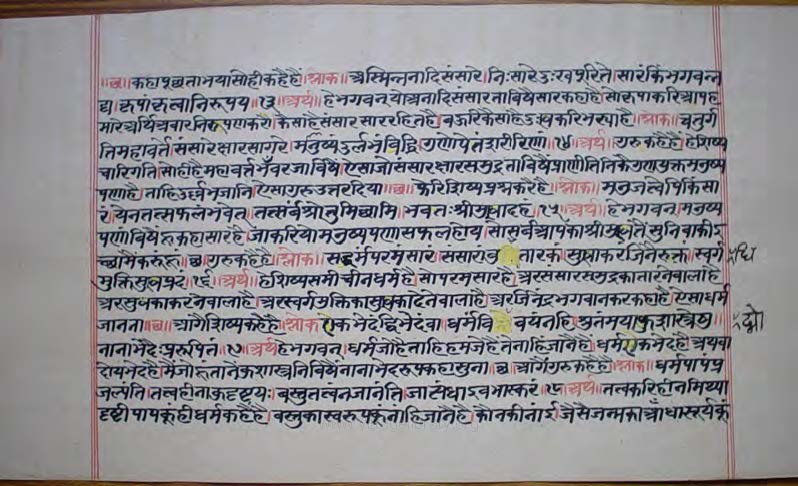 ॥छ॥ कहा पूछता भया सो ही कहै हैं॥ श्लोक॥ अस्मिन्ननादिसंसारे। निःसारे दुःखपूरिते। सारं किं भगवन्न
द्य कृपां कृत्वा निरूपय॥१३॥ अर्थ॥ हे भगवन् यो अनादि संसार ता विषै सार कहा है सो कृपा करि आप ह
मारे अर्थि अवार निरूपण करौ कैसा है संसार सार रहित है। बहुरि कैसा है दुःख करि भर्या है। श्लोक॥ चतुर्ग
तिमहावर्ते। संसारक्षारसागरे। मनुष्यं दुर्लभं विद्धि। गुणोपेतं शरीरिणां॥१४॥ अर्थ॥ गुरु कहै हैं। हे शिष्य
चारि गति सो ही है महावर्त्त भँवर जा विषै। ऐसा जो संसार क्षार समुद्र ता विषै प्राणीनि कै गुणयुक्त मनुष्य
पणा है। ताहि दुर्लभ जानि। ऐसा गुरु उत्तर दिया॥छ॥ फेरि शिष्य प्रश्न करै है। श्लोक॥ मनुजत्वेपि किं सा
रं। येन तत्सफलं भवेत्। तत्सर्वं श्रोतुमिच्छामि। भवतः श्रीमुखादहं॥१५॥ अर्थ॥ हे भगवन्। मनुष्य
पणां विषै कहा सार है। जा करि यो मनुष्यपणा सफल होय। सो सर्व आपका श्रीमुखतैं सुनिवा की इ
च्छा मैं करूं हूं॥छ॥ गुरु कहै हैं॥ श्लोक॥ सद्धर्म परमं सारं। संसारा तारकं। सुखाकरं जिनैरुक्तं। स्वर्ग
मुक्तिसुखप्रदं॥१६॥ अर्थ॥ हे शिष्य समीचीन धर्म है। सो परम सार है। अर संसार समुद्र का तारनेवाला है
अर सुख का करनेवाला है। अर स्वर्ग मुक्ति का सुख का देनेवाला है। अर जिनेंद्र भगवान करि कह्या है। ऐसा धर्म
जानना॥छ॥ आगै शिष्य कहै है॥ श्लोक एकभेदं द्विभेदं वा। धर्मं वयं नहि। श्रुतं मया कुशास्त्रेषु।
नानाभेदैः प्ररूपितं॥१७॥ अर्थ हे भगवन्। धर्म जो है ताहि हम जे है ते नाहि जानै है। धर्म एक भेद है। अथवा
दोय भेद है। मैं जो हूं ता अनेक शास्त्रनि विषै नाना भेदरूप कहा सुना॥छ॥ आगैं गुरु कहै हैं॥ श्लोक॥ धर्म पापं प्र
जल्पंति। तत्वहीना कुदृष्टयः। वस्तुतत्वं न जानंति। जात्यंधा इव भास्करं॥१८॥ अर्थ॥ तत्व करि हीन मिथ्या
दृष्टी पाप कूं ही धर्म कहै है। वस्तु का स्वरूप कूं नांहि जानै है। कौन की नांई जैसै जन्म का आँधा सूर्य कूं